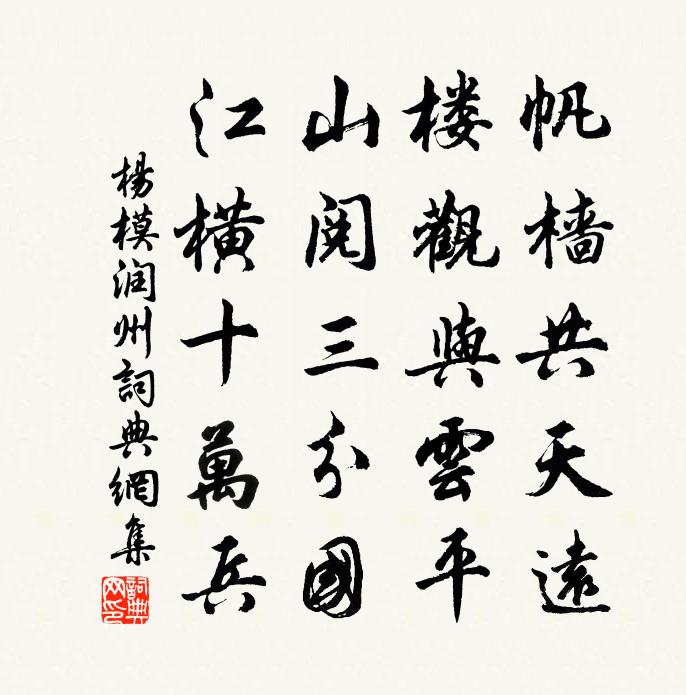 帆檣共天遠
楼觀與雲平
山閲三分國
江横十萬兵
楊模润州詞典網集
詞典网印